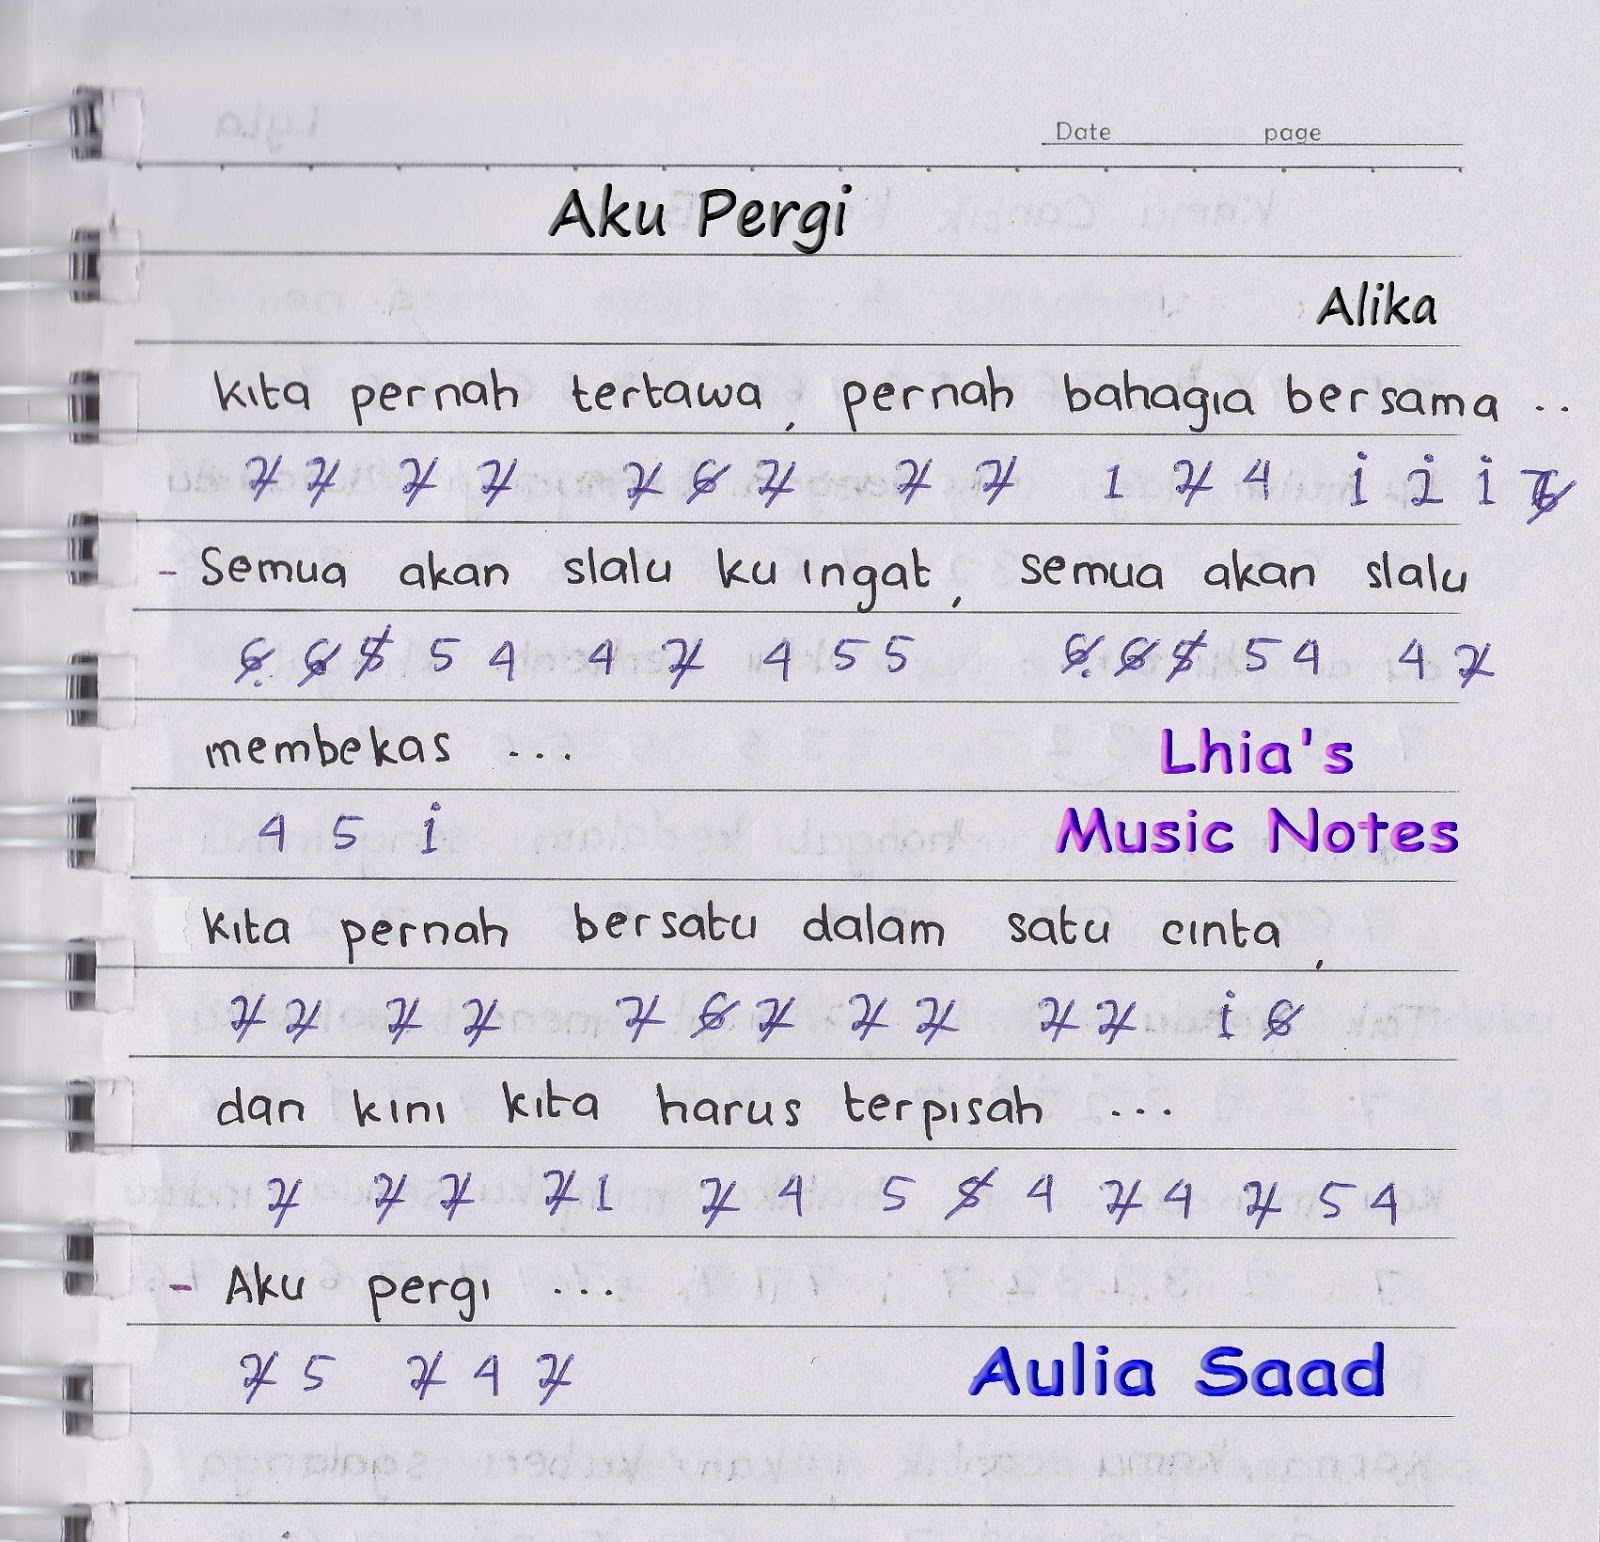 Date page
Aku Pergi
Alika
kita pernah tertawa, pernah bahagia bersama ..
2̸ 2̸ 2̸ 2̸ 2̸ 6̸ 2̸ 2̸ 2̸ 1 2̸ 4 1̇ 2̇ 1̇
- Semua akan slalu ku ingat, semua akan slalu
6̸ 6̸ 5̸ 5 4 4 2̸ 4 5 5 6̸ 6̸ 5̸ 5 4 4 2̸
membekas ...
4 5 1̇
Lhia's
Music Notes
kita pernah bersatu dalam satu cinta,
2̸ 2̸ 2̸ 2̸ 2̸ 6̸ 2̸ 2̸ 2̸ 2̸ 2̸ 1̇ 6̸
dan kini kita harus terpisah ...
2̸ 2̸ 2̸ 2̸ 1 2̸ 4 5 5̸ 4 2̸ 4 2̸ 5 4
- Aku pergi ...
2̸ 5 2̸ 4 2̸
Aulia Saad